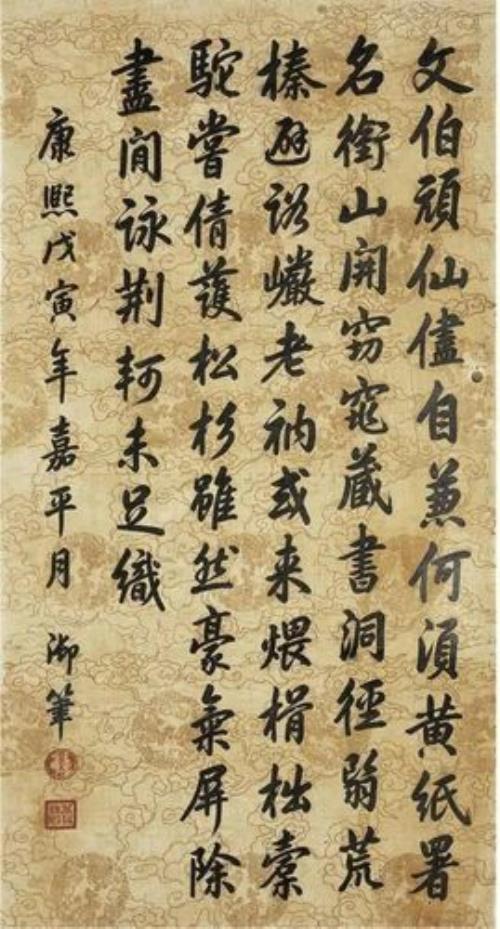 文伯頑仙儘自兼何須黄紙署
名銜山開窈窕蔵書洞徑翦荒
榛避俗巖老衲或来煨榾柮橐
駝嘗倩護松杉雖然豪氣屏除
盡閒詠荆軻未足織
康熙戊寅年嘉平月 御筆